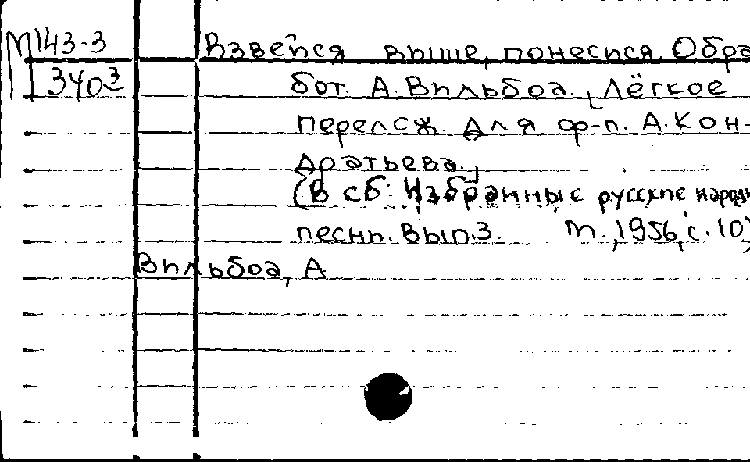 М143-3
340з
Взвейся выше, понесися. Обра
бот. А. Вильбоа., Лёгкое
перелож. для ф-п. А. Кон-
дратьева.,
(В сб: Избранные русские народн
песни. Вып.3. М., 1956, с. 10)
Вильбоа, А